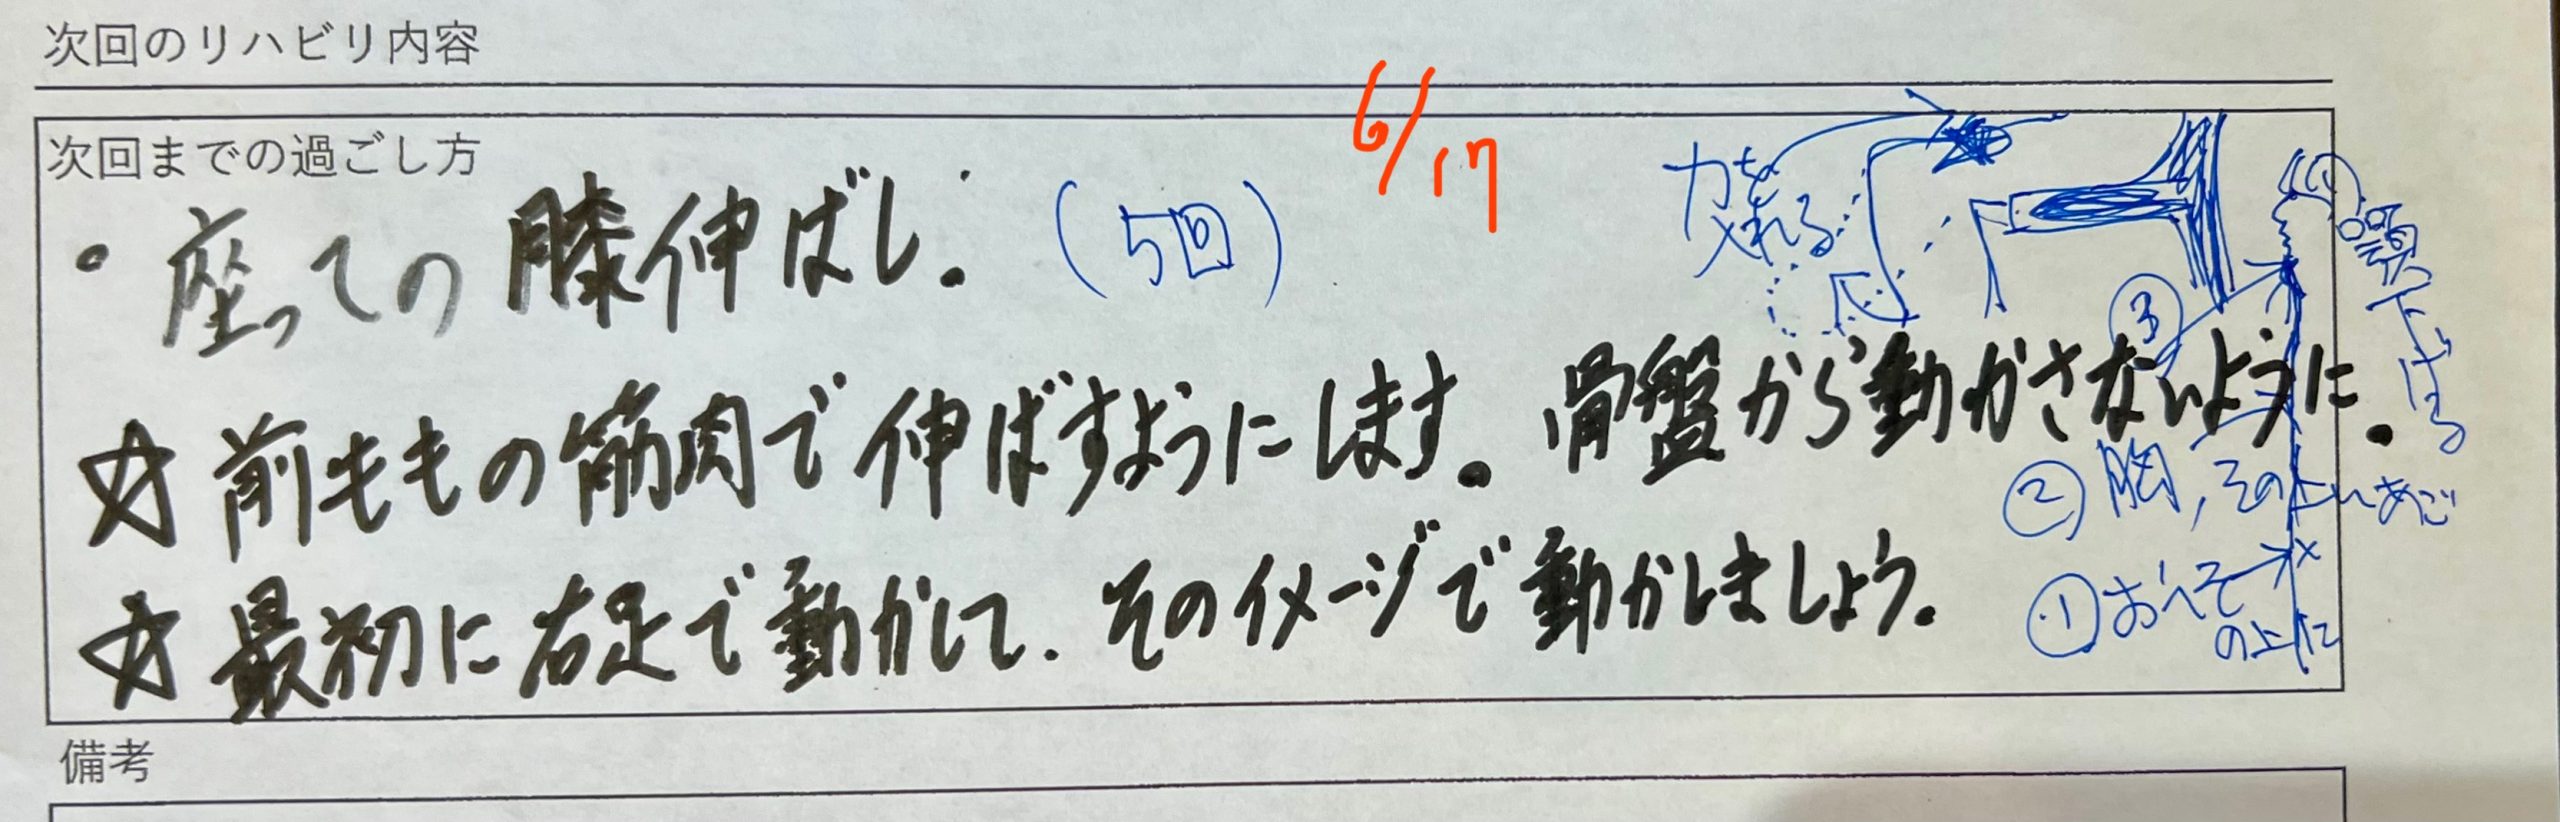 次回のリハビリ内容
6/17
次回までの過ごし方
・座っての膝伸ばし. (5回)
力を
入れる
頭下げる
③
☆前ももの筋肉で伸ばすようにします。骨盤から動かさないように.
②胸,その上へあご
☆最初に右足で動かして.そのイメージで動かしましょう.
①おへそ
の上に
備考